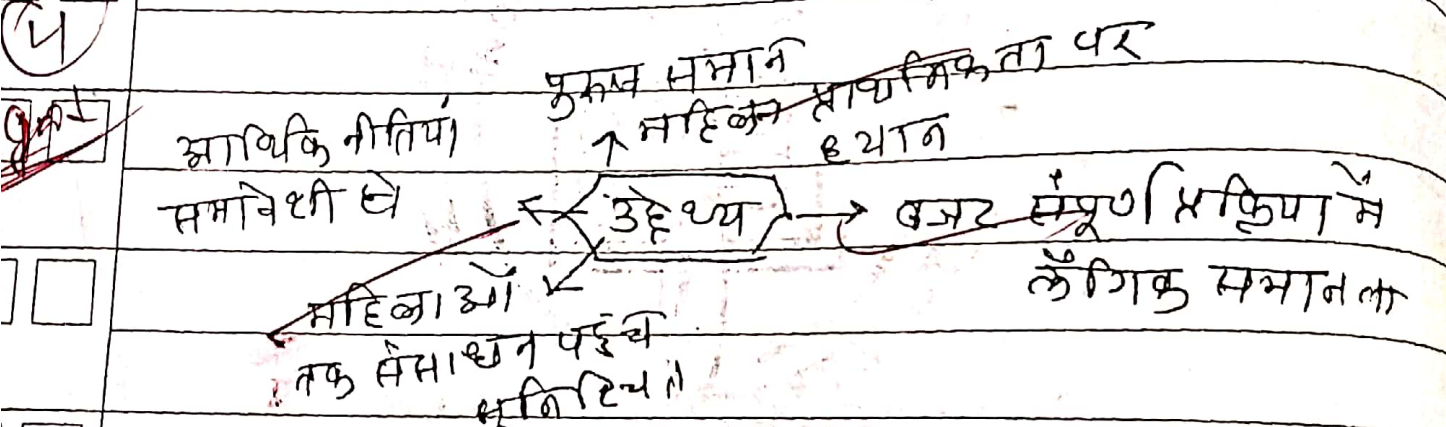 4
पुरूष समान
महिला प्राथमिकता पर
ध्यान
आर्थिक नीतियां
समावेशी हो
उद्देश्य
बजट संपूर्ण प्रक्रिया में
लैंगिक समानता
महिलाओं
तक संसाधन पहुंच
सुनिश्चित